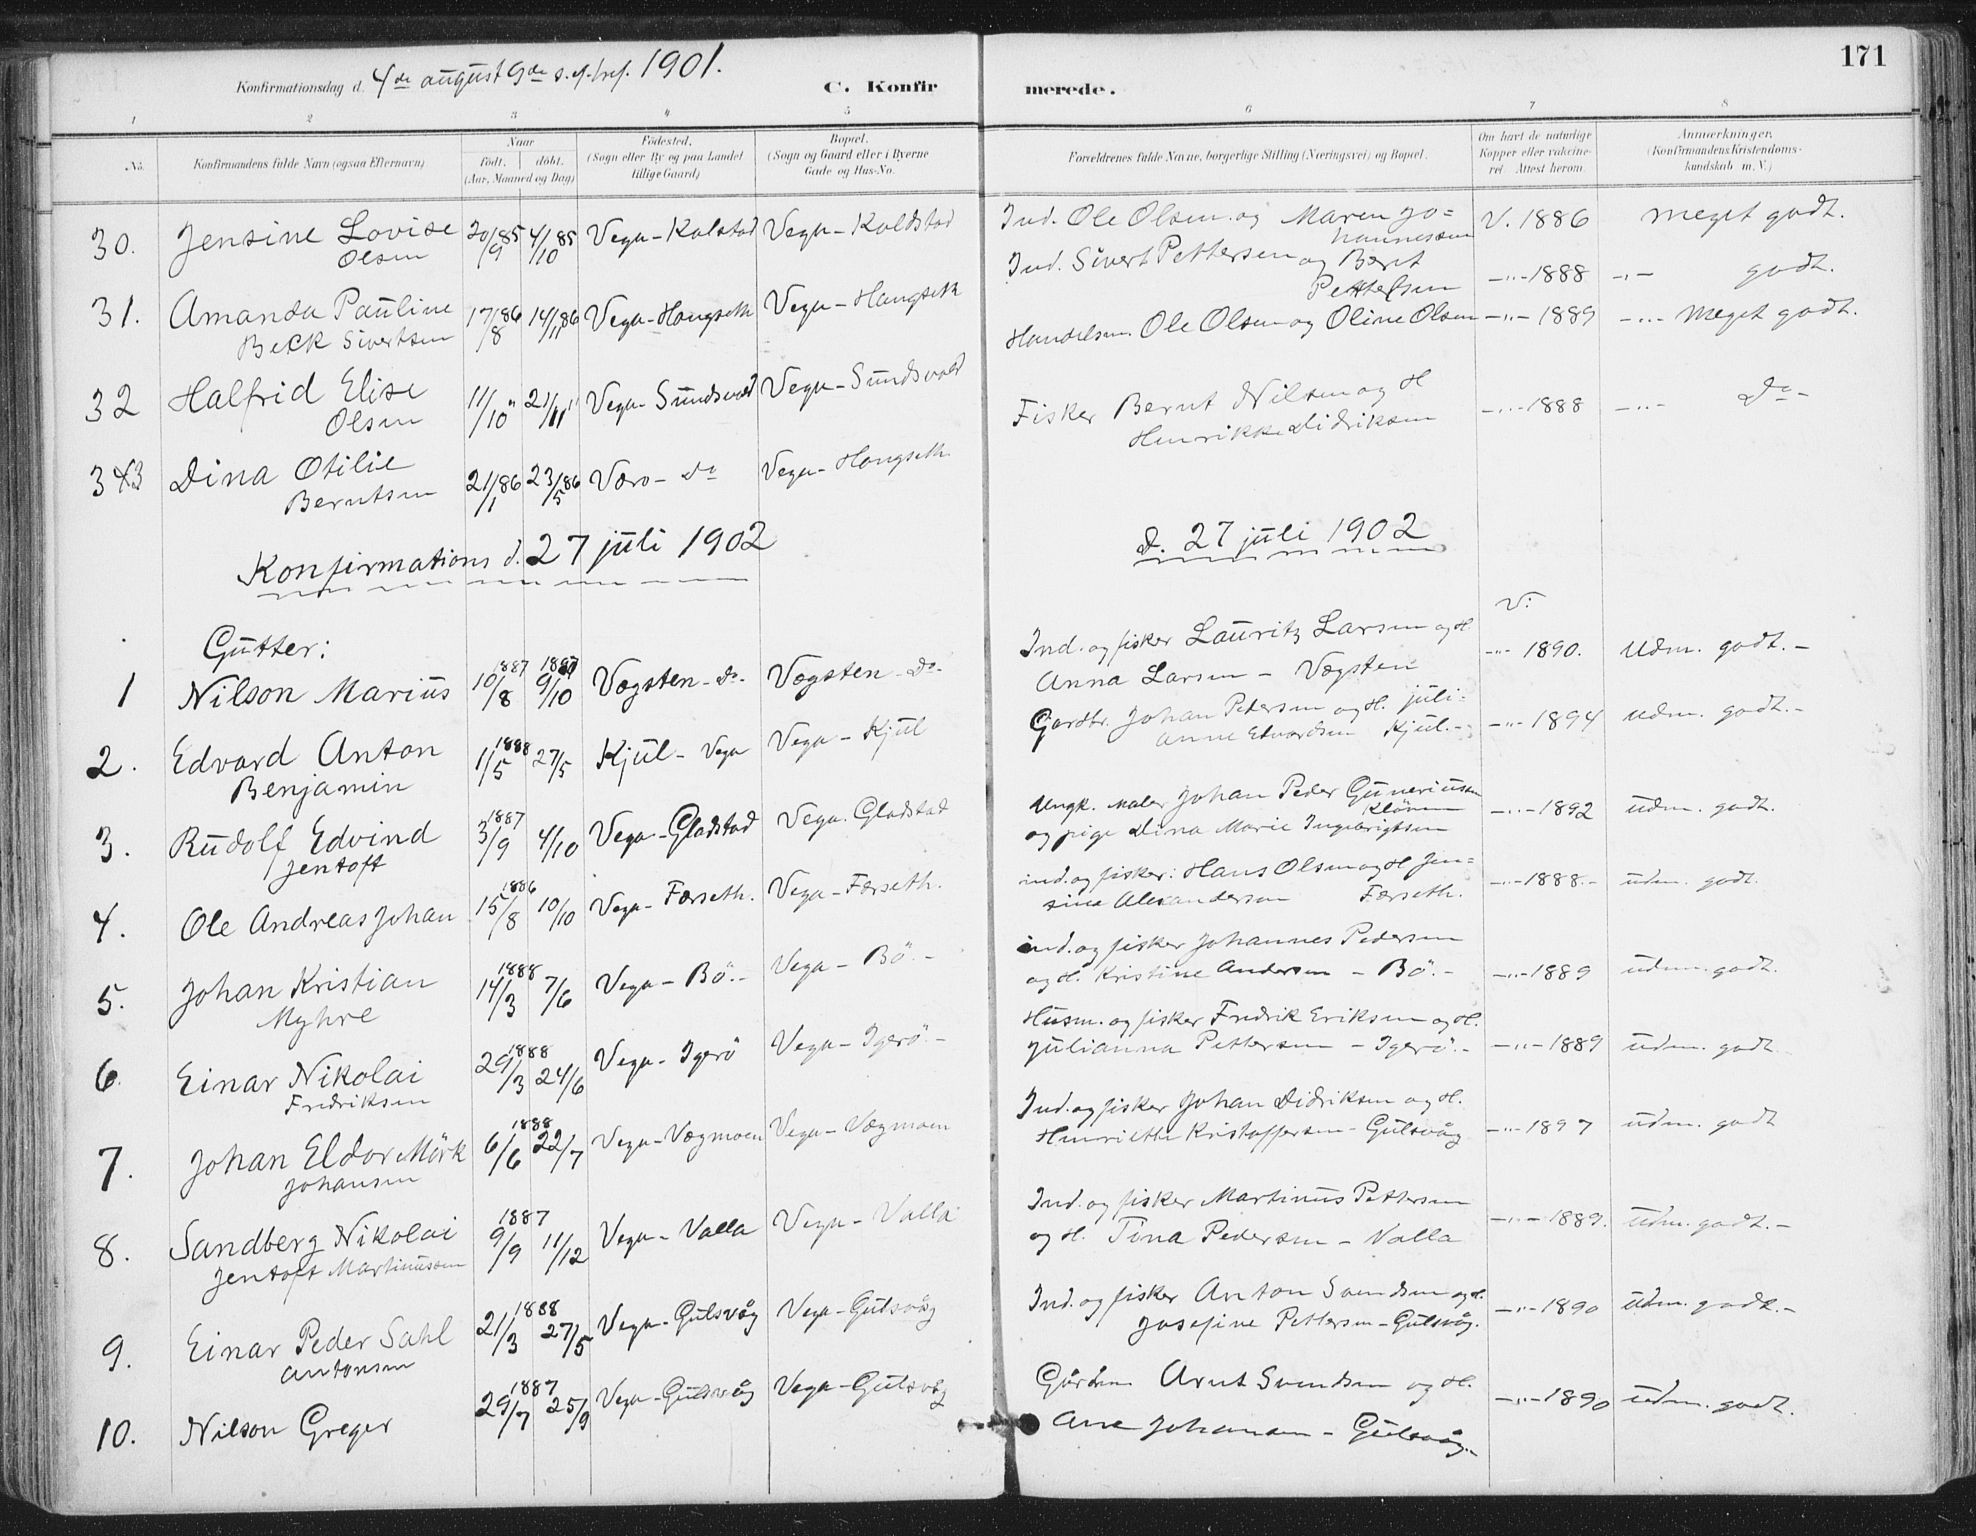 171
Konfirmationsdag d. 4de august 9de 1901.
C. Konfirmerede.
1 2 3 4 5 6 7 8
No.
Konfirmandens fulde Navn (ogsaa Efternavn)
Naar
födt. döbt.
(Aar, Maaned og Dag)
Födested.
(Sogn eller By og paa Landet
tillige Gaard)
Bopæl.
(Sogn og Gaard eller i Byerne
Gade og Hus-No.
Forældrenes fulde Navne, borgerlige Stilling (Næringsvei) og Bopæl.
Om havt de naturlige
Kopper eller vakcine-
ret. Attest herom.
Anmerkninger.
(Konfirmandens Kristendoms-
kundskab m. V.)
30. Jensine Lovise 20/9 85 4/10 85 Vega-Kolstad Vega-Koldstad Ind. Ole Olsen og Maren Jo= V. 1886 meget godt.
Olsen hannessen
31. Amanda Pauline 17/8 86 14/11 86 Vega-Hongseth Vega-Hongseth Ind. Sivert Pettersen og Beret -"-1888 -"- godt.
Beck Sivertsen Pettersen
32 Halfrid Elise 11/10 " 21/11 " Vega-Sundsvold Vega-Sundsvold Handelsm. Ole Olsen og Oline Olsen -"-1889 -"- Meget godt.
Olsen
33 Dina Otilie 21/1 86 23/5 86 Værø-do Vega-Hongseth Fisker Bernt Nilsen og H -"-1888 -"- Do-
Berntsen Henrikke Didriksen
Konfirmations d. 27 juli 1902 d. 27 juli 1902
Gutter: V:
1 Nilson Marius 10/8 1887 9/10 1887 Vægsten-do. Vægsten-do. Ind. og fisker Lauritz Larsen og H. -"-1890. Udm. godt.-
Anna Larsen - Vægsten
2. Edvard Anton 1/5 1888 27/5 Kjul-Vega Vega-Kjul Gardbr. Johan Petersen og H. juli= -"-1894 Udm. godt.-
Benjamin anne Edvardsen Kjul.-
3. Rudolf Edvind 3/9 1887 4/10 Vega-Gladstad Vega.Gladstad Ungk. Maler Johan Peder Guneriusen -"-1892 udm. godt.
Jentoft og pige Dina Marie Ingebrigtsen
4. Ole Andreas Johan 15/8 1886 10/10 Vega-Færseth. Vega-Færseth. ind. og fisker: Hans Olsen og H Jen= -"-1888.- udm. godt.
sine Alexandersen Færseth.
5. Johan Kristian 14/3 1888 7/6 Vega-Bö.- Vega-Bö.- ind. og fisker Johannes Pedersen
Myhre og H. Kristine Andersen - Bö.- -"-1889 udm. godt.
6. Einar Nikolai 29/3 1888 24/6 Vega-Igerö Vega-Igerö.- Husm. og fisker Fredrik Eriksen og H.
Fredriksen Julianna Pettersen - Igerö.- -"-1889 udm. godt
7. Johan Eldor Mörk 6/6 1888 22/7 Vega-Vægmoen Vega-Vægmoen Ind. og fisker Johan Didriksen og H.
Johansen Henriette Kristoffersen-Gulsvåg -"-1897 udm. godt
8. Sandberg Nikolai 9/9 1887 11/12 Vega-Valla Vega-Valla Ind. og fisker Martinus Pettersen
Jentoft Martinussen og H. Tina Pedersen-Valla -"-1889. udm. godt.-
9. Einar Peder Sahl 21/3 1888 27/5 Vega-Gulsvåg Vega-Gulsvåg Ind. og fisker Anton Svendsen og H. -"-1890 udm. godt.-
Antonsen Josefine Pettersen-Gulsvåg.
10. Nilson Greger 29/7 1887 25/9 Vega-Gulsvåg Vega-Gulsvåg Arnt Svendsen og H. -"-1890 udm. godt.
Ane Johansen-Gulsvåg.